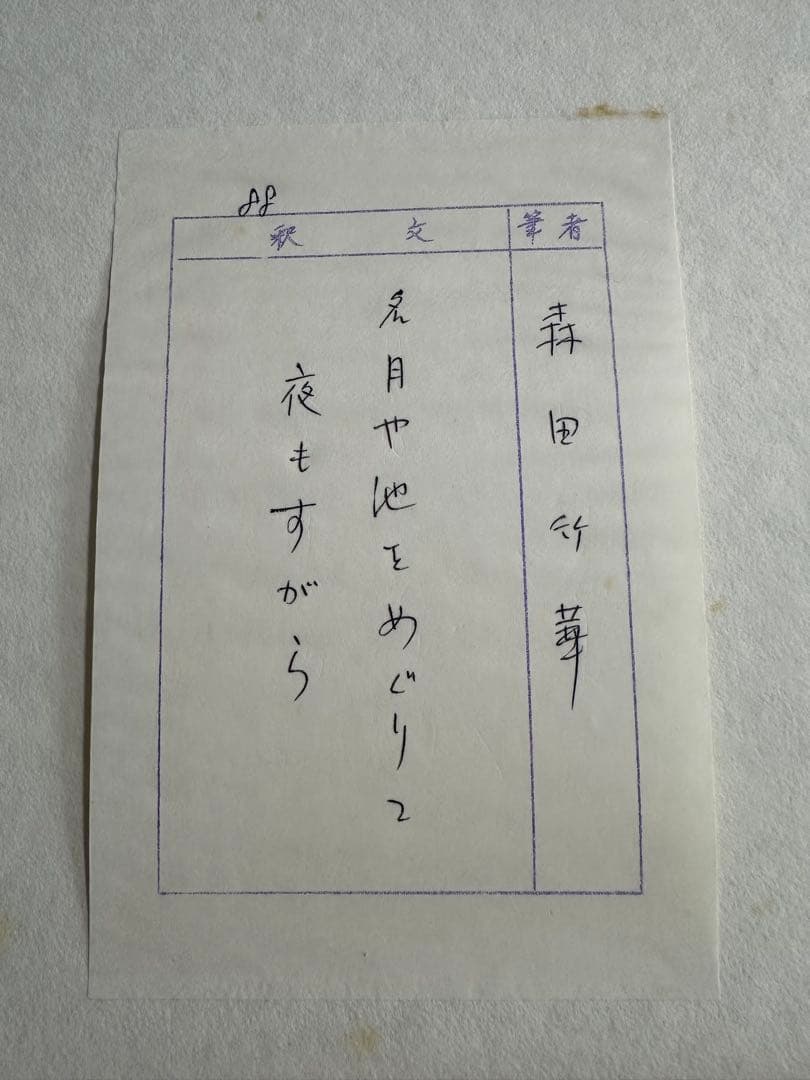 88
筆者
森田竹華
釈文
名月や池をめぐりて
夜もすがら